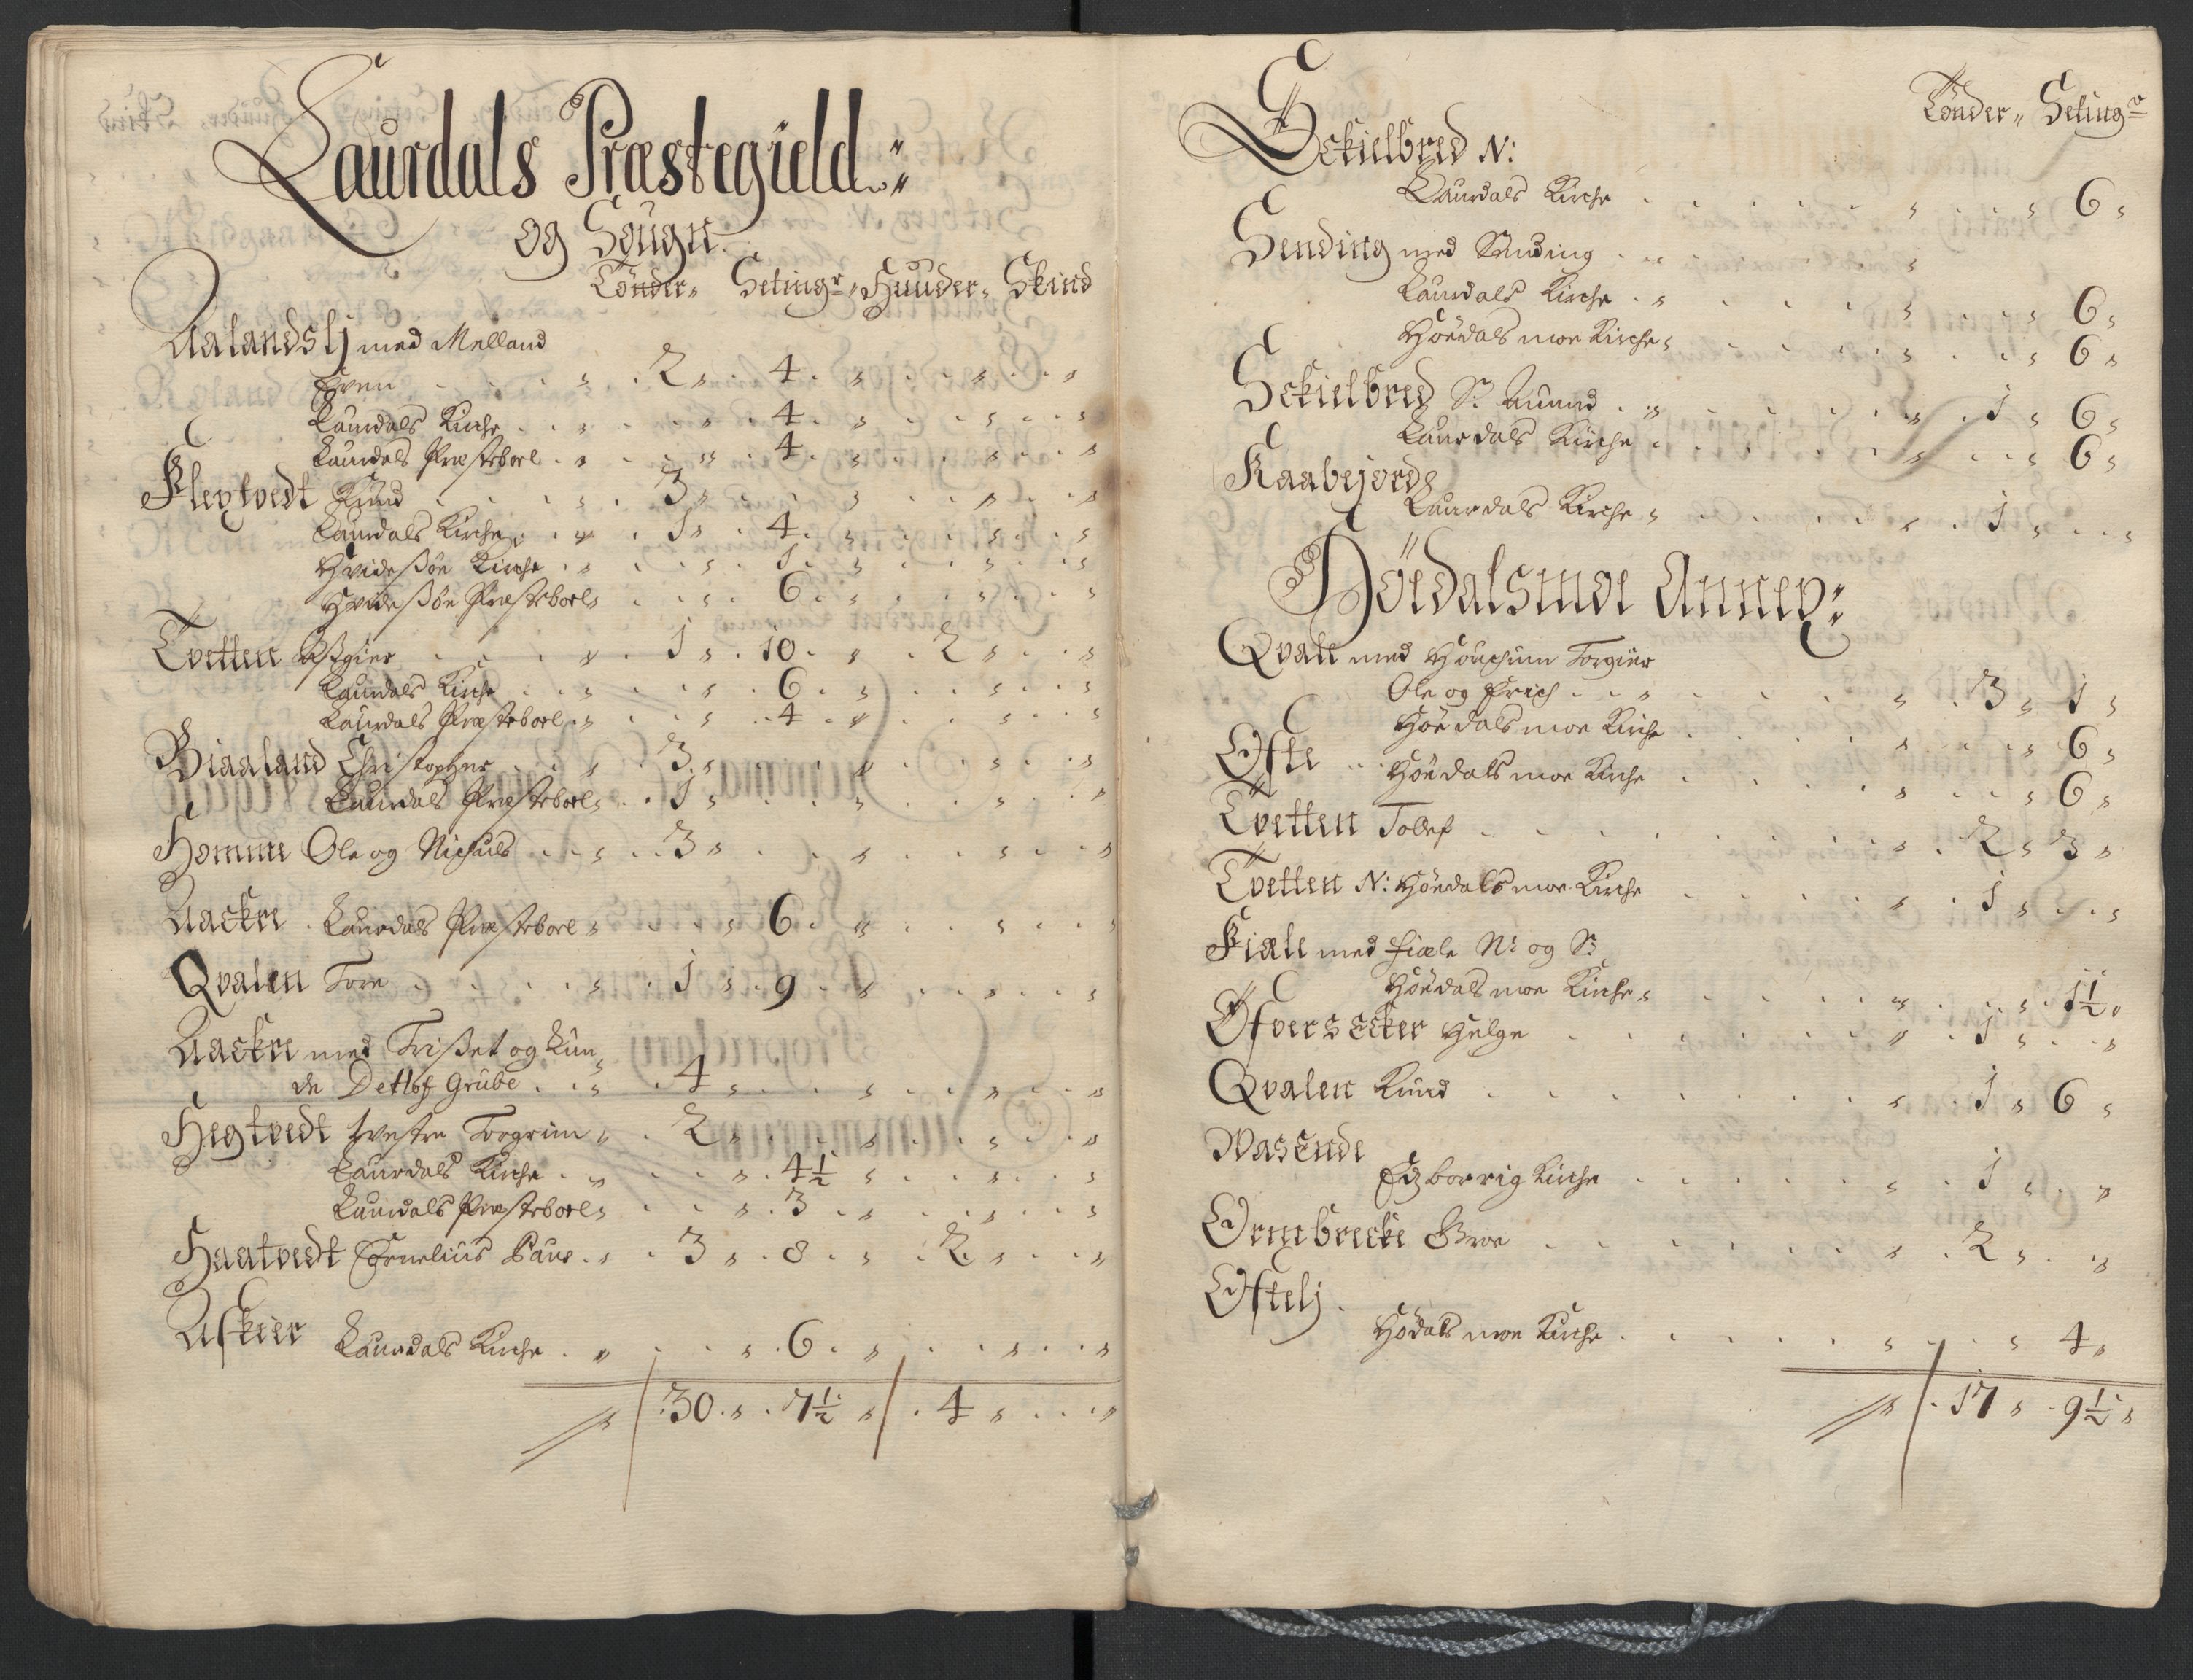 Laurdals Præstegield
og Sougn
Tönder„ Setingr„ Huuder„ Skind
Aalandslj med Melland
Even . . . „ 2„ . 4 . „
Laurdals Kirche . . „ . . „ . 4 . „
Laurdals Præsteboel . „ . . „ . 4 . „
Flegtvedt Knud . . „ 3„ . . „
Laurdals Kirche . . „ . 1„ . 4 . „
Hvidesßöe Kirche . „ . . „ . 1 . „
Hvidesßöe Præsteboel„ . . „ . 6 . „
Tvetten Aßgier . . „ . 1„ . 10 . „ . 2„ . . „
Laurdals Kirche . . „ . . „ . 6 . „
Laurdals Præsteboel . „ . . „ . 4 . „
Biaaland Christopher . . „ . 3„ . . „
Laurdals Præsteboel„ . 1„ . . „
Homme Ole og Nichuls . . „ . 3„ . . „
Aackre . Laurdals Præsteboel „ . . „ 6 . „
Qvalen Tore . . . „ . 1„ . 9 . „
Aackre med Trißet og Lun„
de Detlof Grube . . „ . 4„ . . „
Hegtvedt Westre Torgrim „ . 2„ . . „
Laurdals Kirche . . „ . . „ . 4½ „
Laurdals Præsteboel„ . . „ . 3 . „
Haatvedt Cornelius Paus . „ . 3„ . 8 . „ . 2„ . . „
Askier Laurdals Kirche . „ . . „ . 6 . „
„ . 30 . „ . 7½ „ . 4 „ . . . „
Tönder„ Setingr
Schielbred N:
Laurdals Kirche . . . „ . . „ 6„
Sending med Sending . . „
Laurdals Kirche . „ . . „ . . „ 6„
Höedals moe Kirche„ . . „ . . „ 6„
Schielbred S: Amund . „ . . „ . 1„ 6„
Laurdals Kirche . . . „ . . „ 6„
Raabejorde
Laurdals Kirche „ . . . „ . 1„ . . „
Höedalsmoe Annex:
Qvale med Houchum Torgier
Ole og Erich . . „ . . „ . 3„ 1„
Höedals moe Kirche . . . „ . . „ 6„
Ofte . . Höedals moe Kirche . . . „ . . „ 6„
Tvetten Tollef . . . . „ . 2„ 3„
Tvetten N: Höedals moe Kirche . . . „ . 1„ . . „
Fiale med Fiæle N: og S:
Höedals moe Kirche„ . . „ . . „ 1½„
Öfvers Ecker Helge . . . . „ . 1„ . . „
Qvalen Knud . . . . „ . 1„ 6„
Wasende
Edzborrig Kirche . . . „ . 1„ . „
Ormbrecke Groe . . . . „ . 2„ . „
Oftelj .
Hödals moe Kirche . . . „ . . „ 4„
„ . 17„ . 9½ „